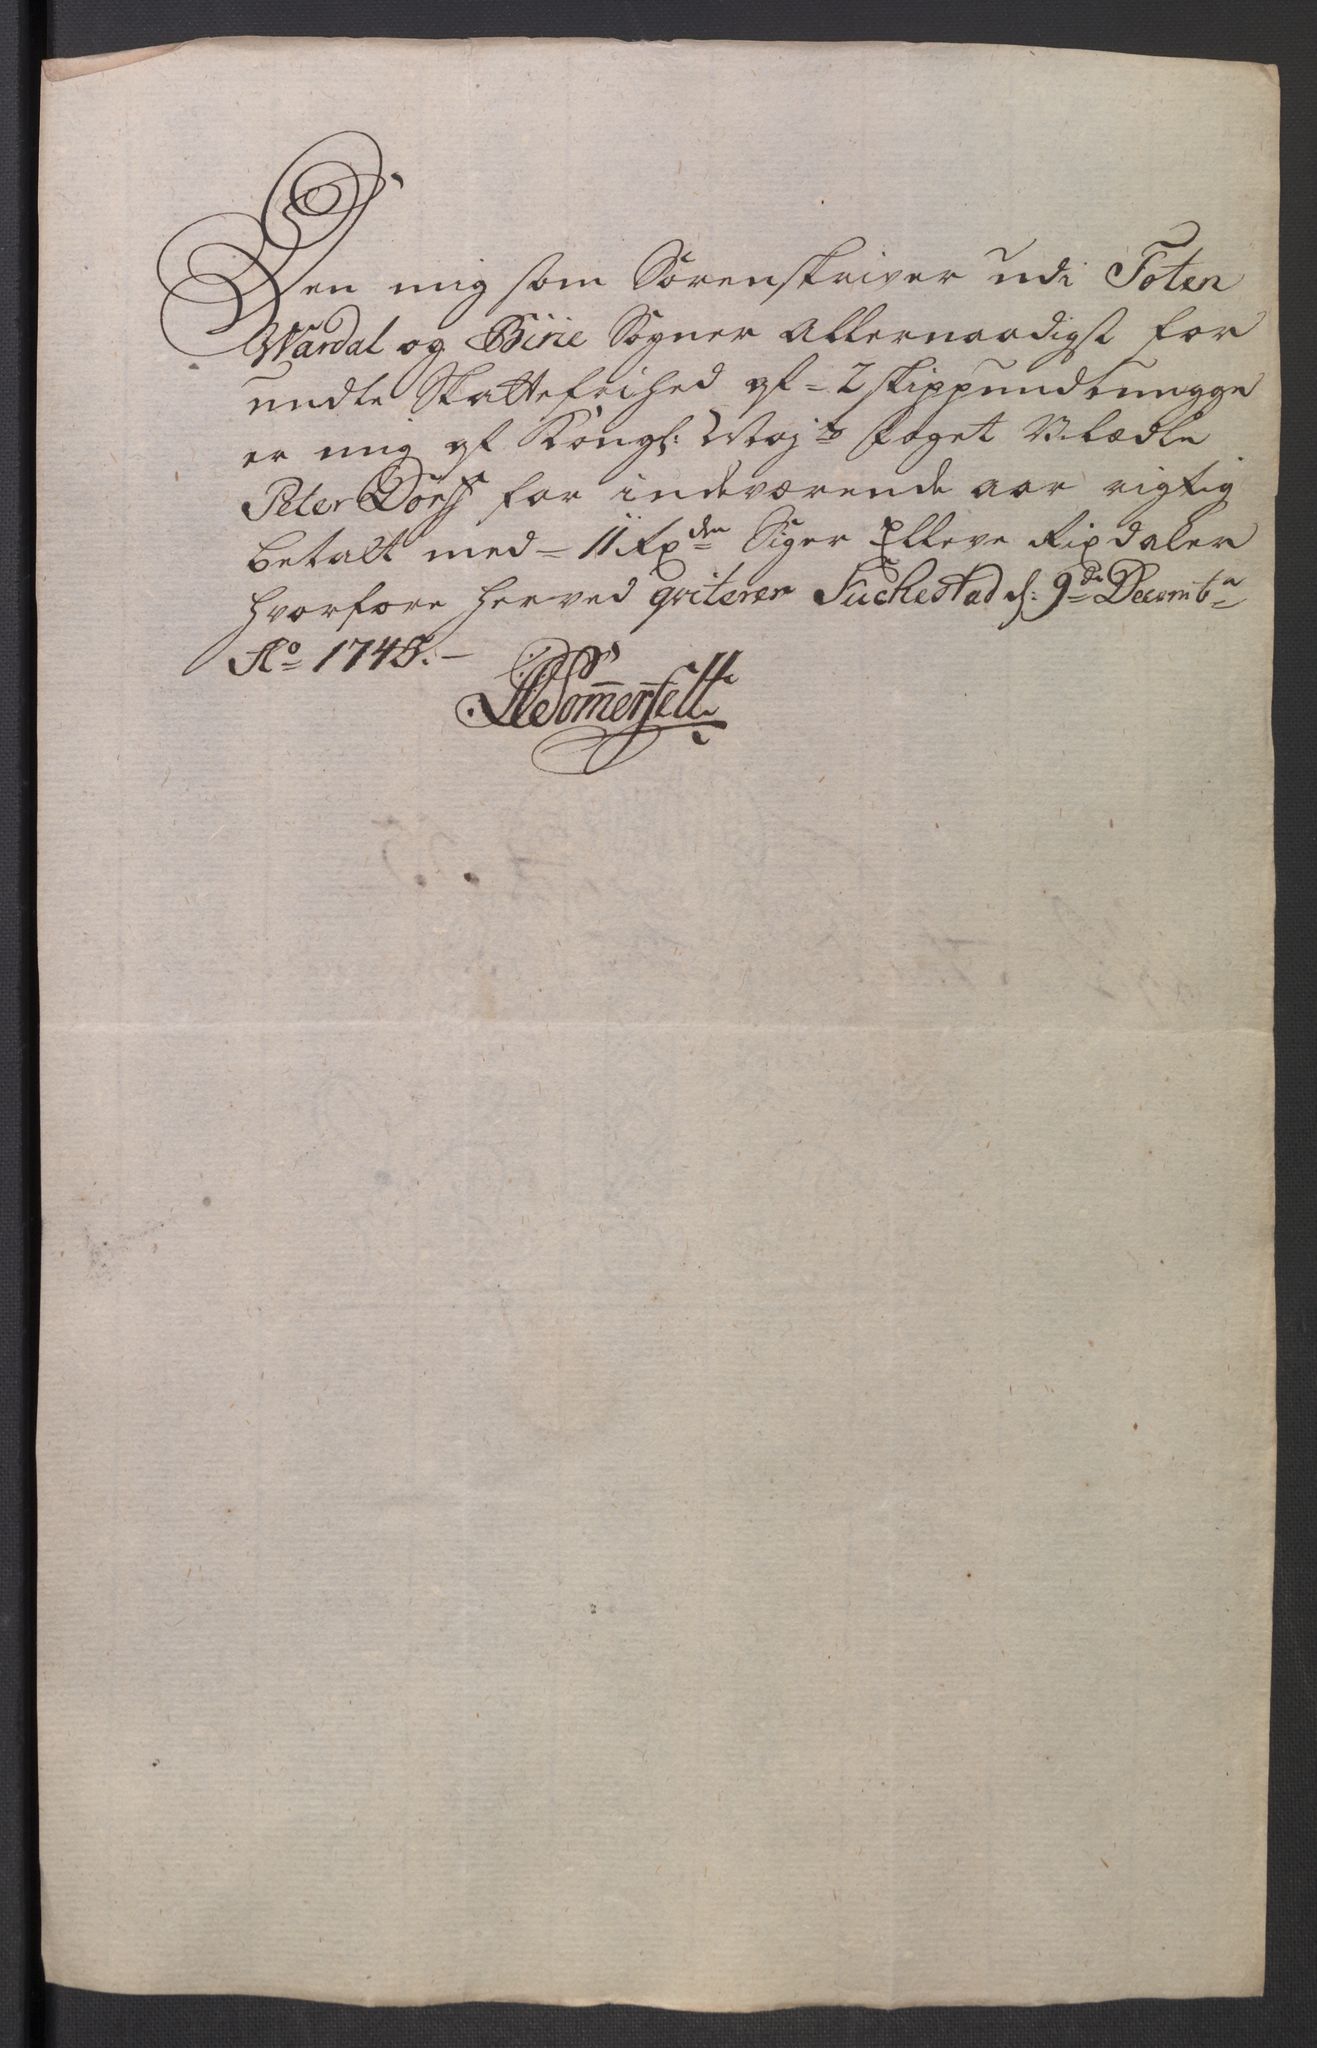 Den mig som Sorenskriver udi Toten
Wardal og Birie Sogner allernaadigst for
undte Skattefrihed af = 2 skippund tunge
er mig af Kongl: Mayts foget Vel ædle
Peter Dorff for indeværende aar rigtig
betalt med = 11 Rxdr Siger Elleve Rixdaler
hvorfore herved qviterer Suchestad d: 9de Decembr
Ao 1745. –
Sommerfelt